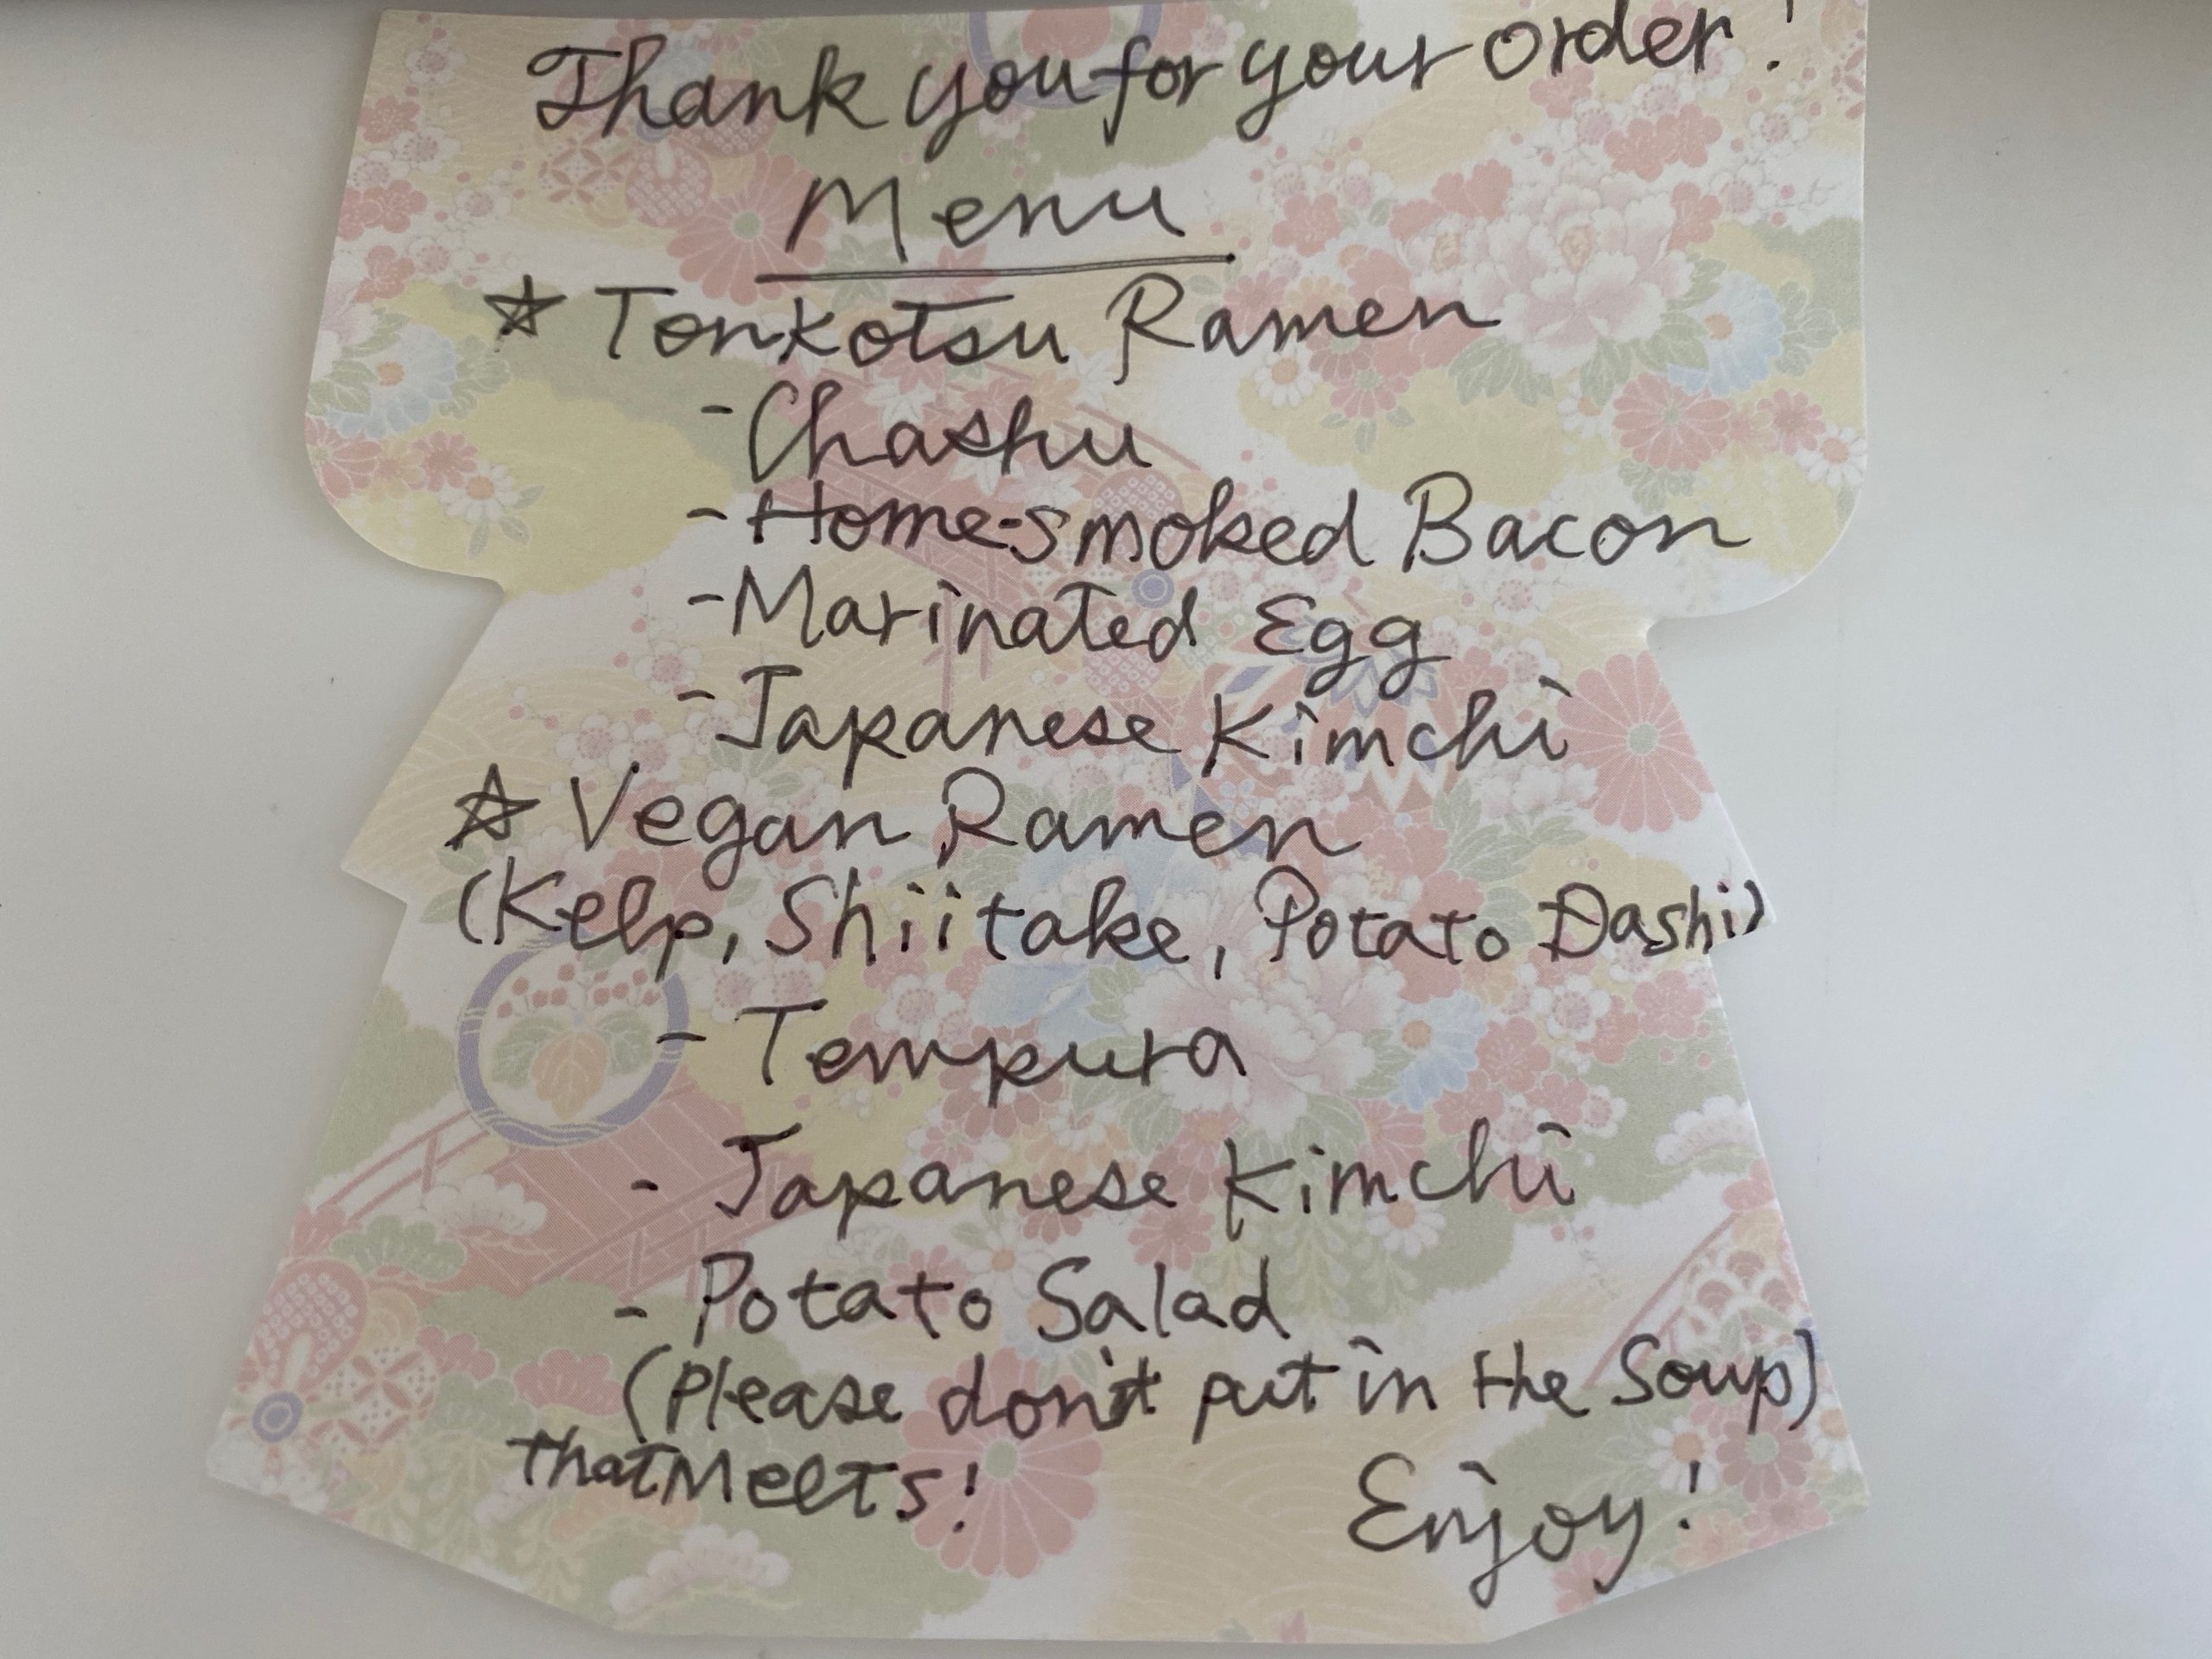 Thank you for your order!
Menu
☆ Tonkotsu Ramen
- Chashu
- Home-smoked Bacon
- Marinated Egg
- Japanese Kimchi
☆ Vegan Ramen
(Kelp, Shiitake, Potato Dashi)
- Tempura
- Japanese Kimchi
- Potato Salad
(Please don't put in the Soup)
that Melts!
Enjoy!